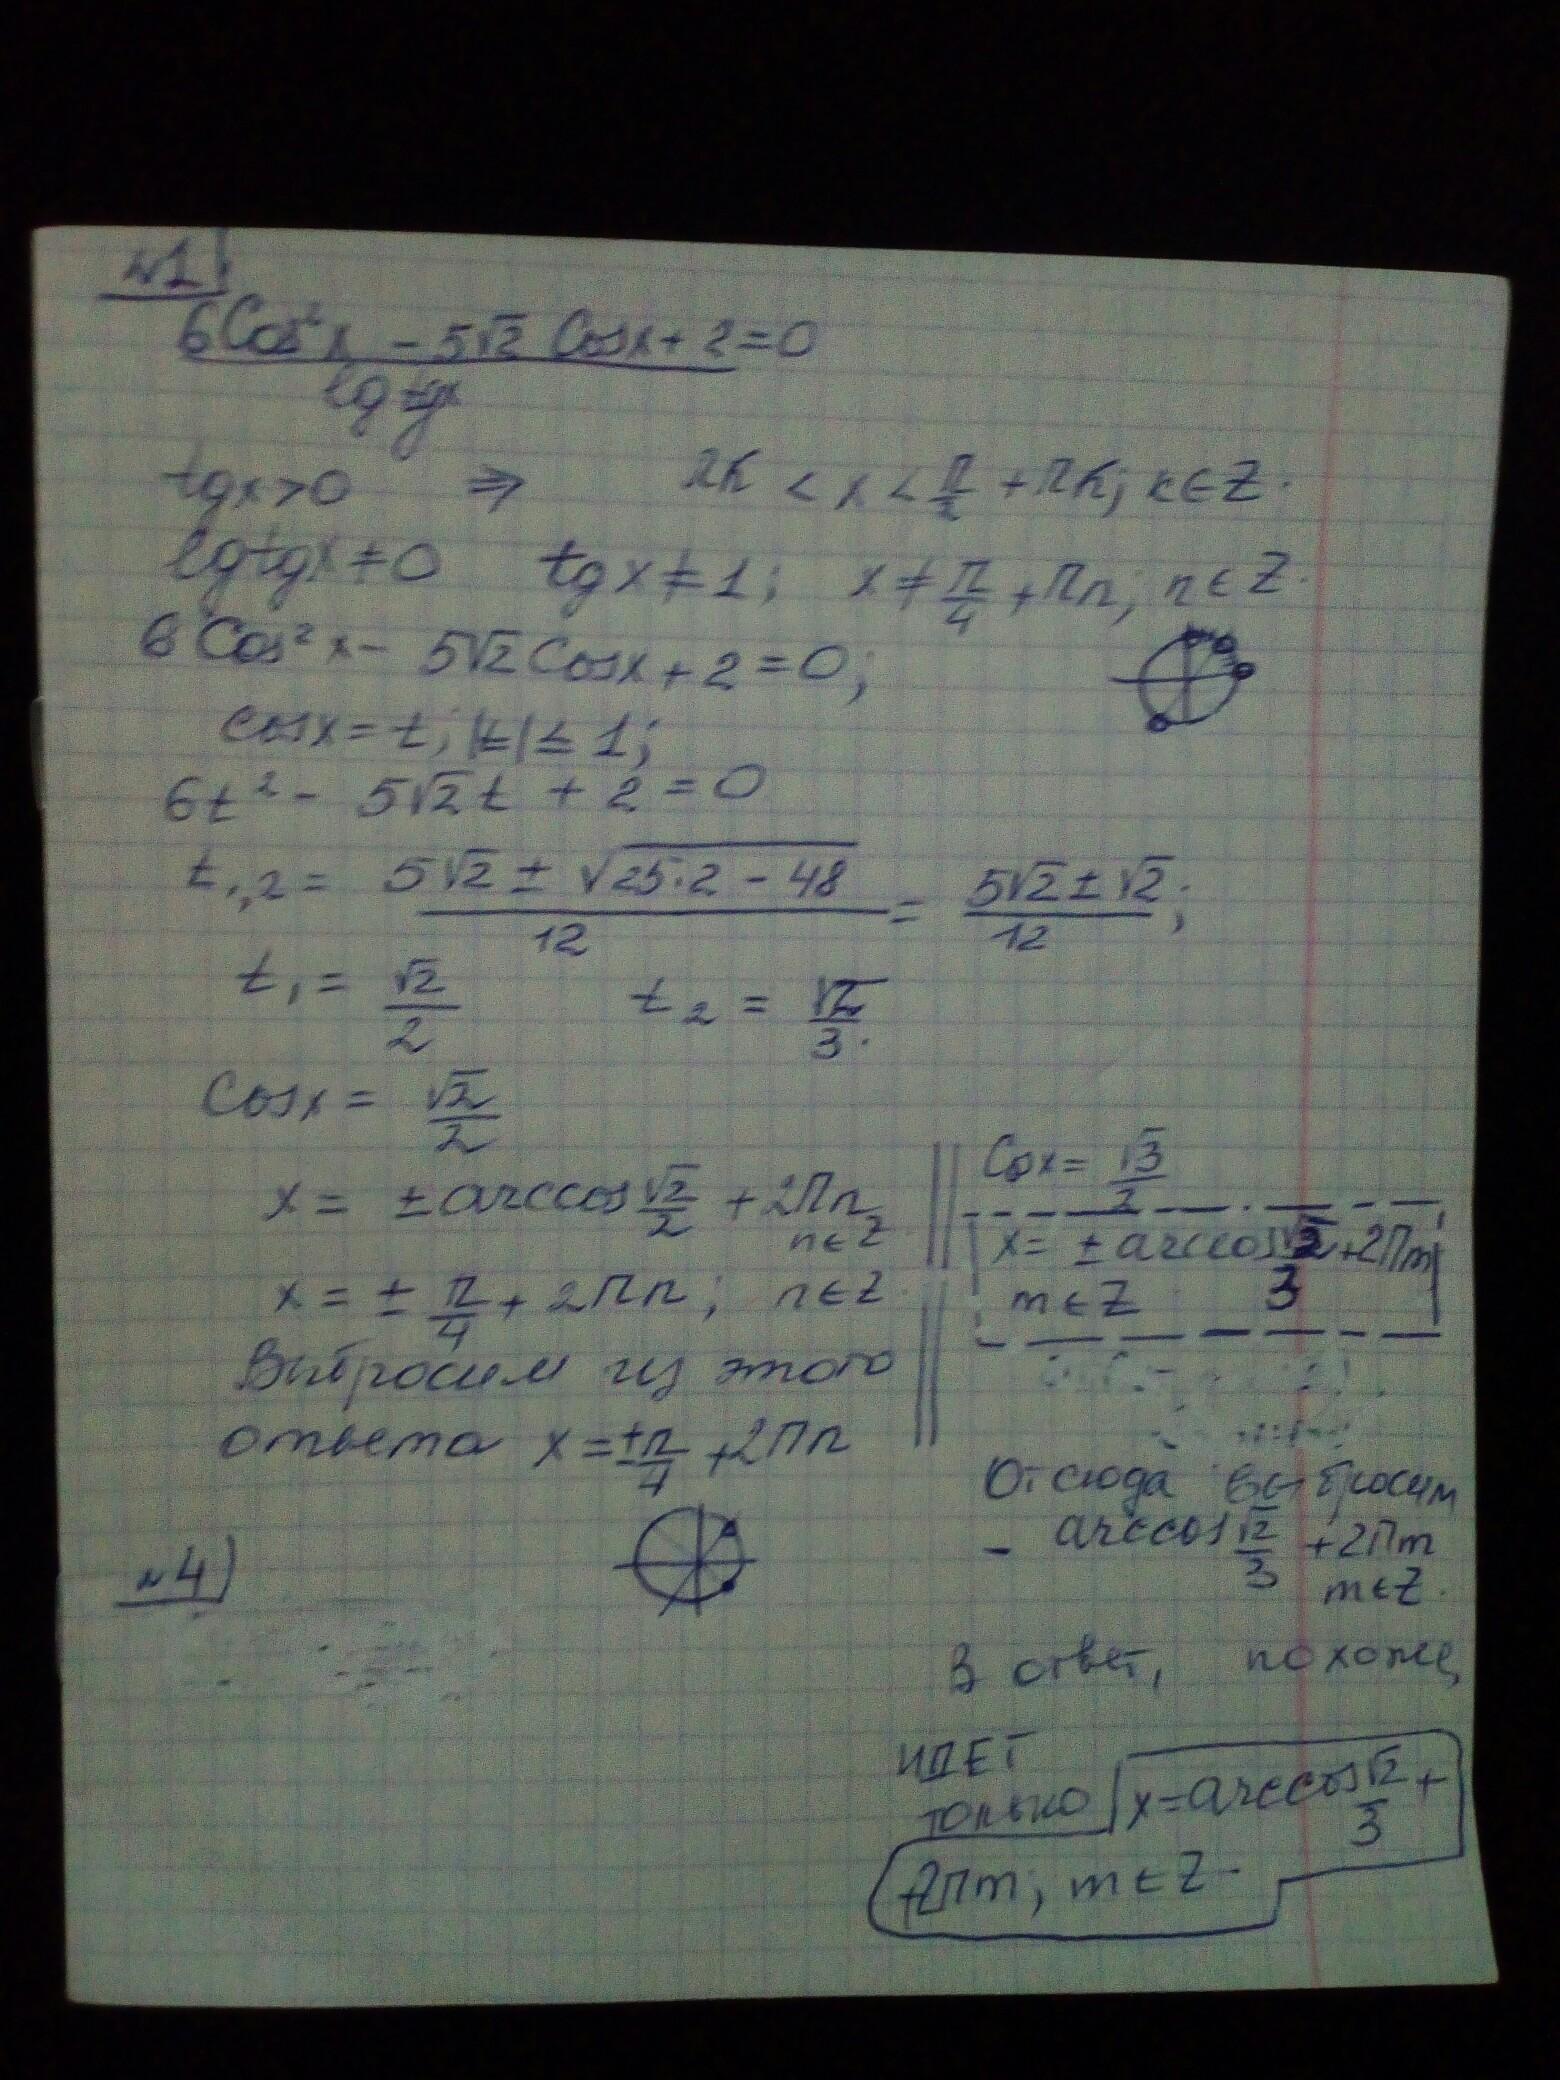 №1)
6Cos²x - 5√2 Cosx + 2 = 0
lg tgx
tgx > 0 ⇒ πk < x < π/2 + πk; k ∈ Z.
lgtgx ≠ 0 tgx ≠ 1; x ≠ π/4 + πn; n ∈ Z.
6Cos²x - 5√2Cosx + 2 = 0;
cosx = t; |t| ≤ 1;
6t² - 5√2t + 2 = 0
t₁,₂ = (5√2 ± √(25·2 - 48))/12 = (5√2 ± √2)/12;
t₁ = √2/2 t₂ = √2/3.
Cosx = √2/2
x = ± arccos √2/2 + 2πn, n ∈ Z
x = ± π/4 + 2πn; n ∈ Z
Выбросим из этого
ответа x = ±π/4 + 2πn
Cosx = √3/2
x = ± arccos √2/3 + 2πm
m ∈ Z
Отсюда выбросим
- arccos √2/3 + 2πm
m ∈ Z.
В ответ, похоже,
идет
только x = arccos √2/3 +
+2πm; m ∈ Z
№4)